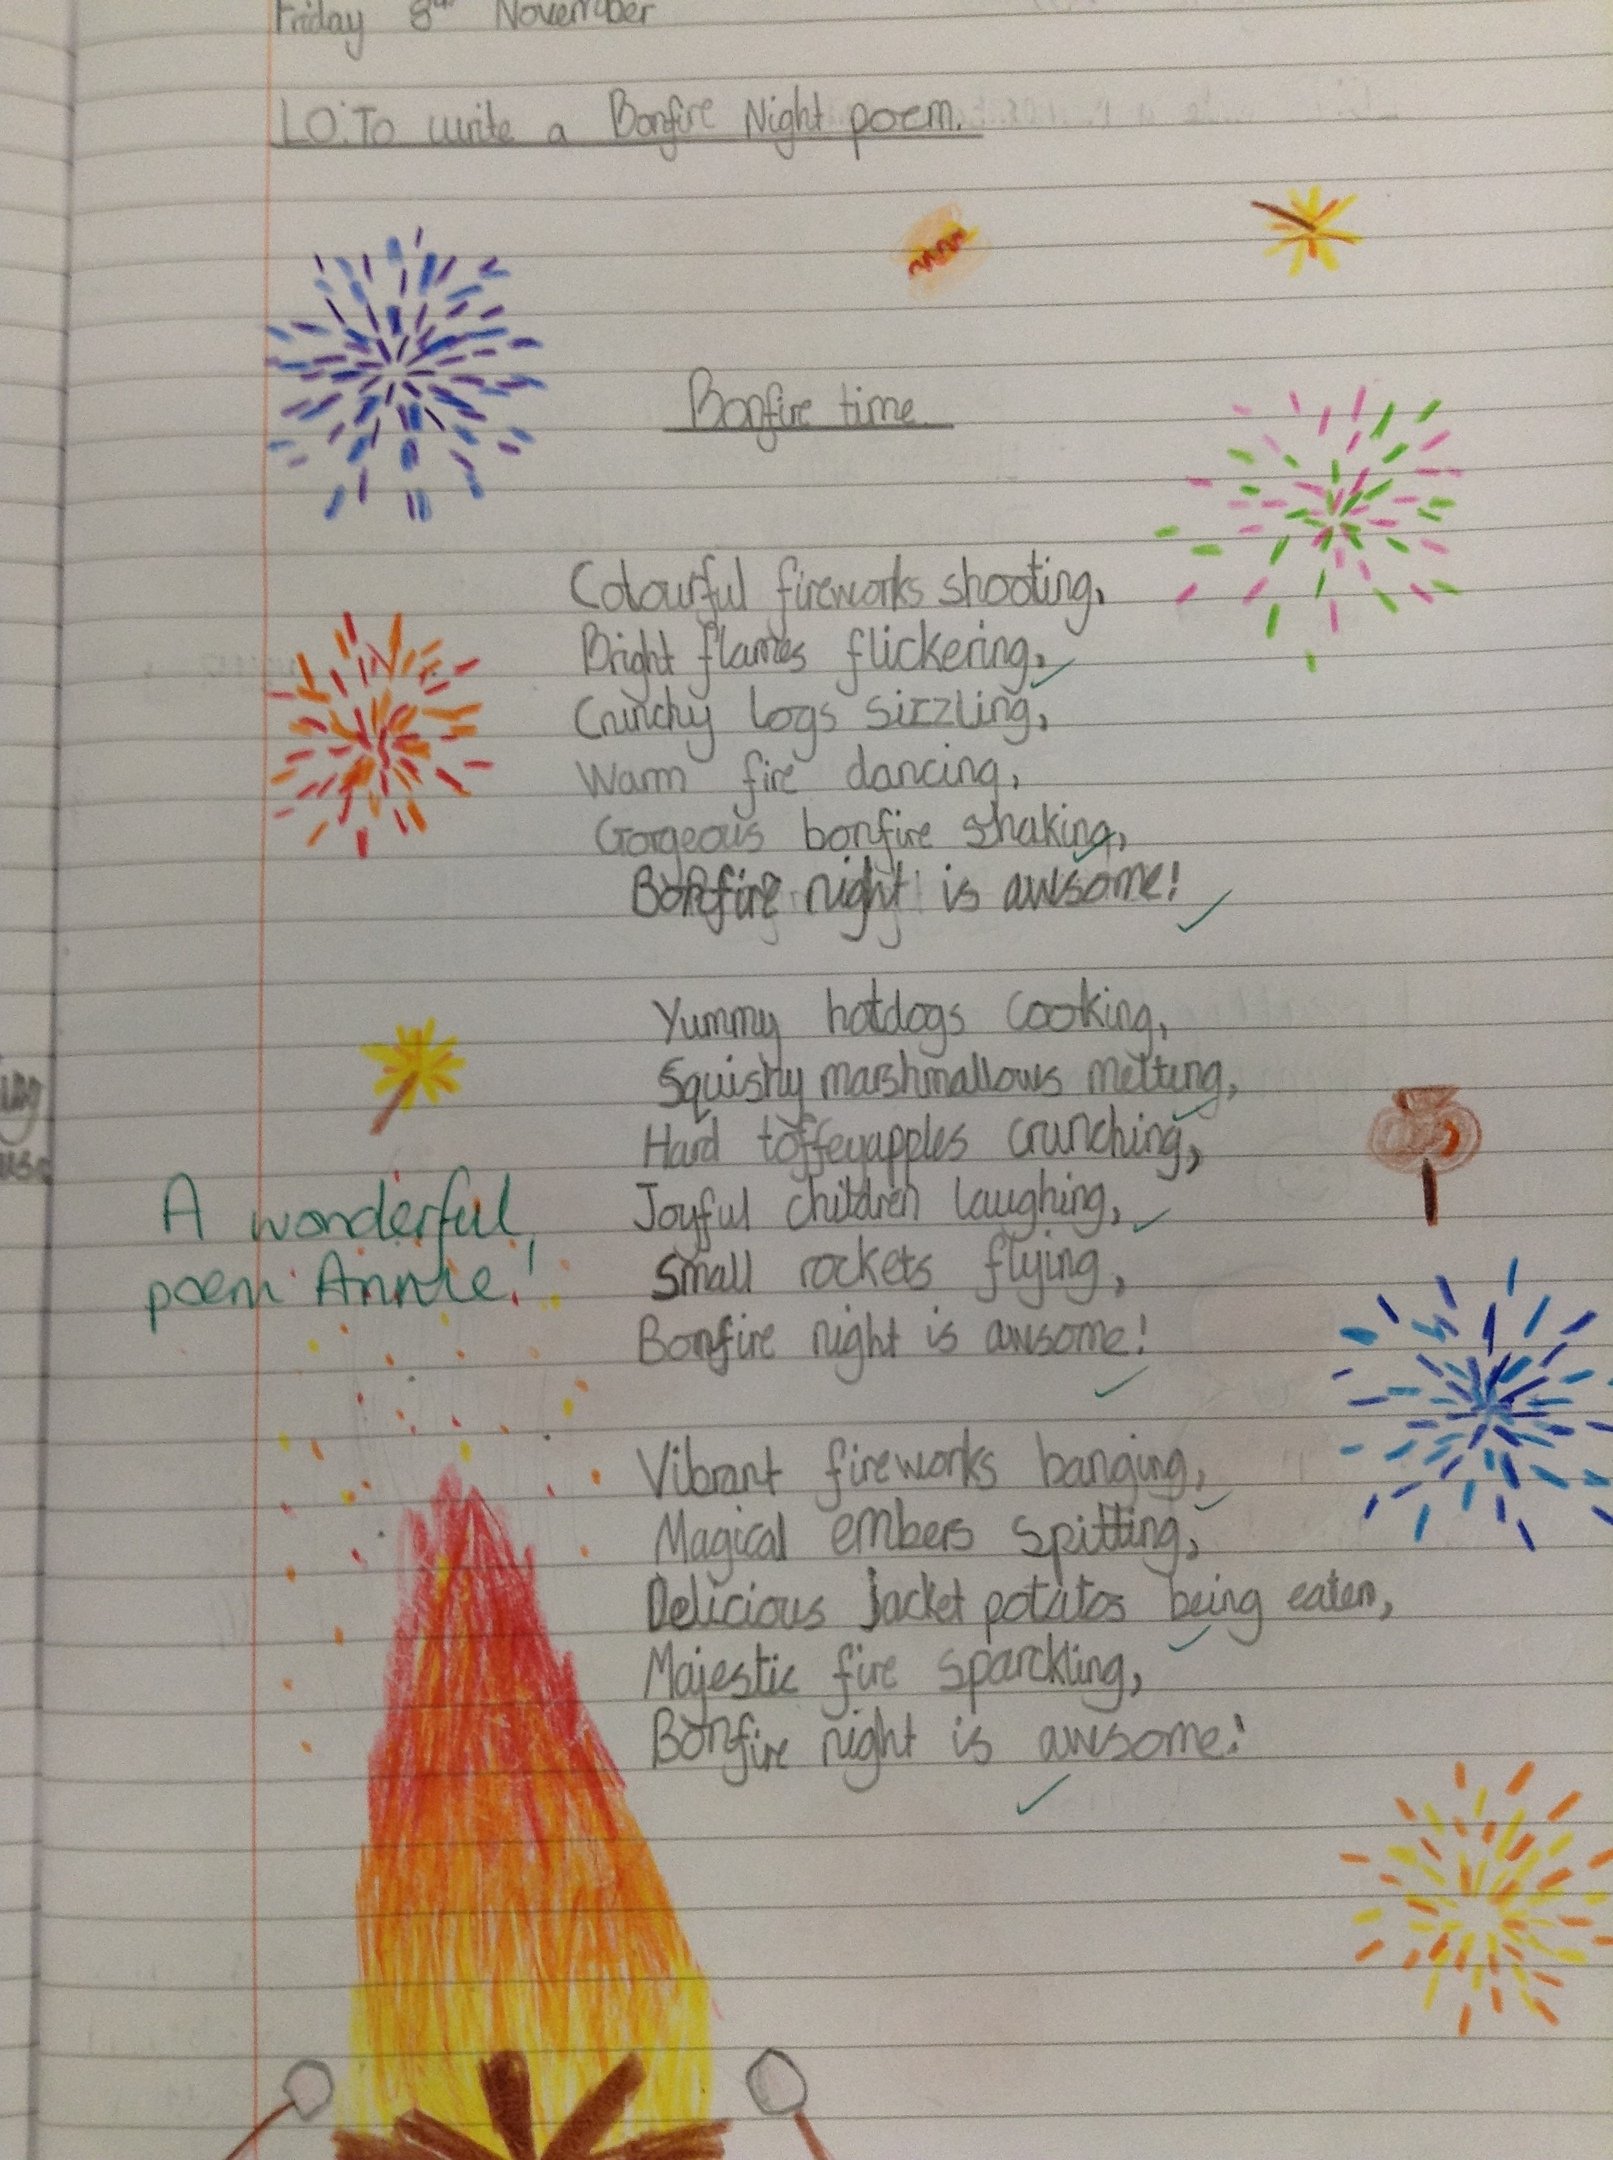 Friday 8th November
LO: To write a Bonfire Night poem.
Bonfire time
Colourful fireworks shooting,
Bright flames flickering,
Crunchy logs sizzling,
Warm fire dancing,
Gorgeous bonfire shaking,
Bonfire night is awsome!
Yummy hotdogs cooking,
Squishy marshmallows melting,
Hard toffeyapples crunching,
Joyful children laughing,
Small rockets flying,
Bonfire night is awsome!
A wonderful
poem Annie!
Vibrant fireworks banging,
Magical embers spitting,
Delicious Jacket potatos being eaten,
Majestic fire sparckling,
Bonfire night is awsome!